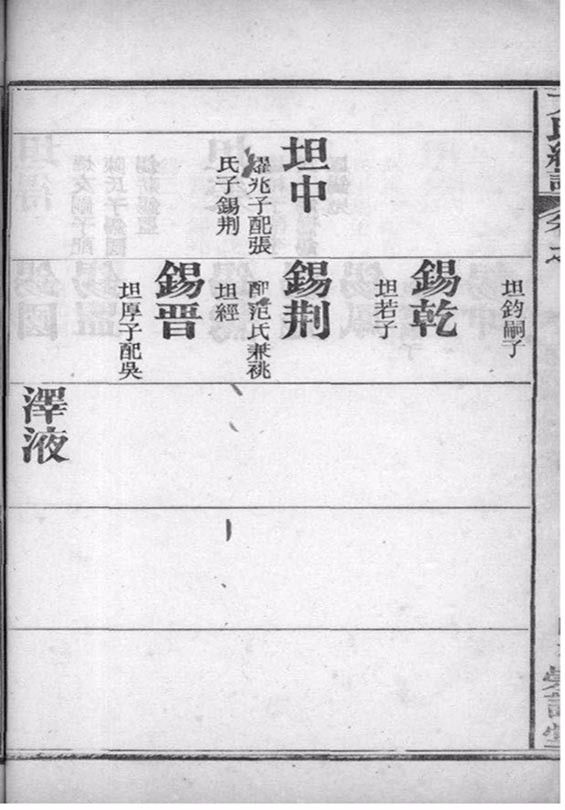 氏統譜
坦中
燿兆子配張
氏子錫荆
坦鈞嗣子
錫乾
坦若子
錫荆
配范氏兼祧
坦經
錫晋
坦厚子配吳
澤液